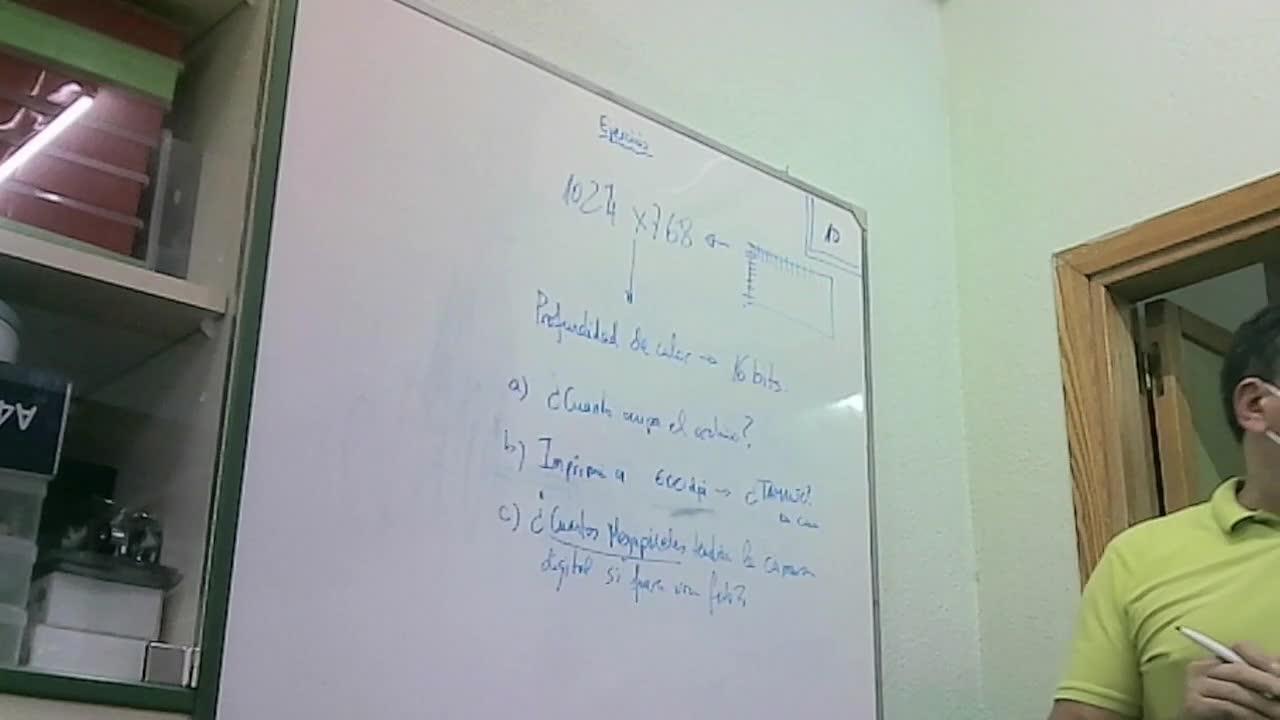 Ejercicio
1024 x 768 ←
10
Profundidad de color → 16 bits.
a) ¿Cuanto ocupa el archivo?
b) Imprimir a 600 dpi → ¿TAMAÑO?
en cm
c) ¿Cuantos Megapixeles tendria la camara
digital si fuera una foto?
A4